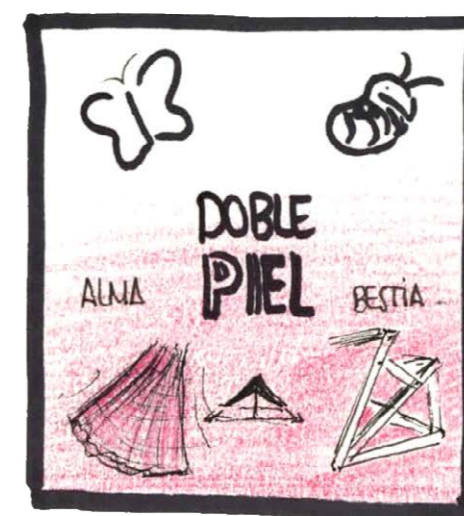 DOBLE
PIEL
ALMA
BESTIA